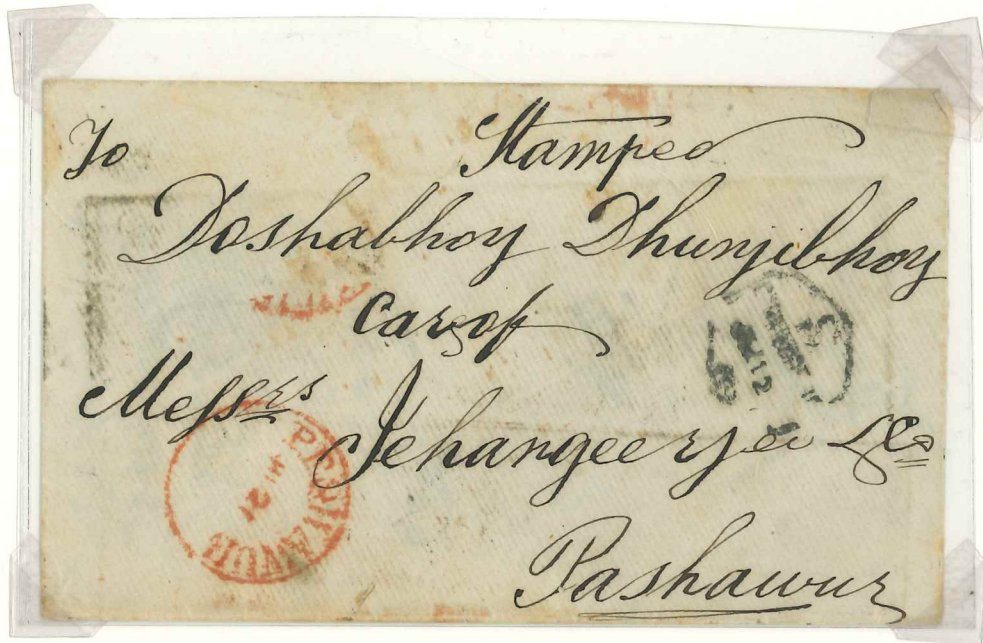 To Stamped
Doshabhoy Dhunjibhoy
Care of
Messrs
Jehangeerjee & Co
Pashawur
PESHAWUR
21
12